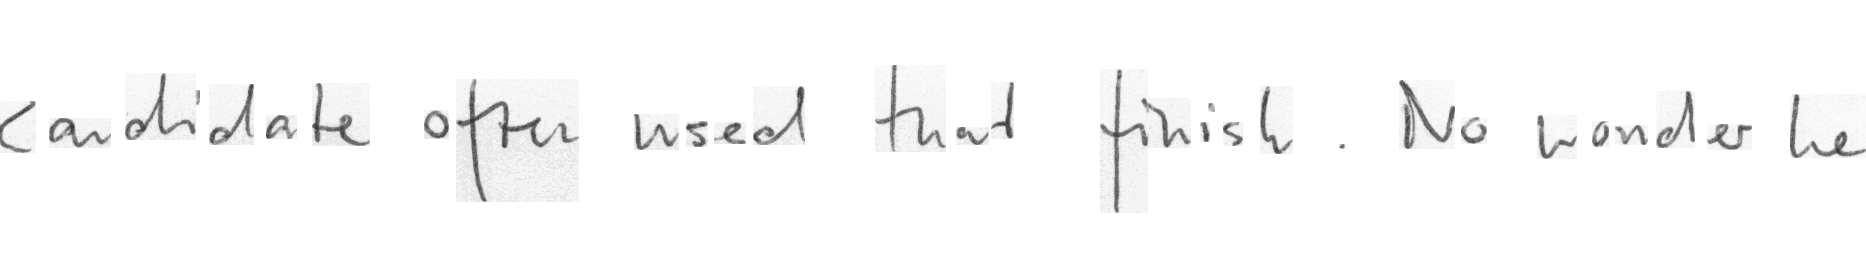 candidate often used that finish. No wonder he